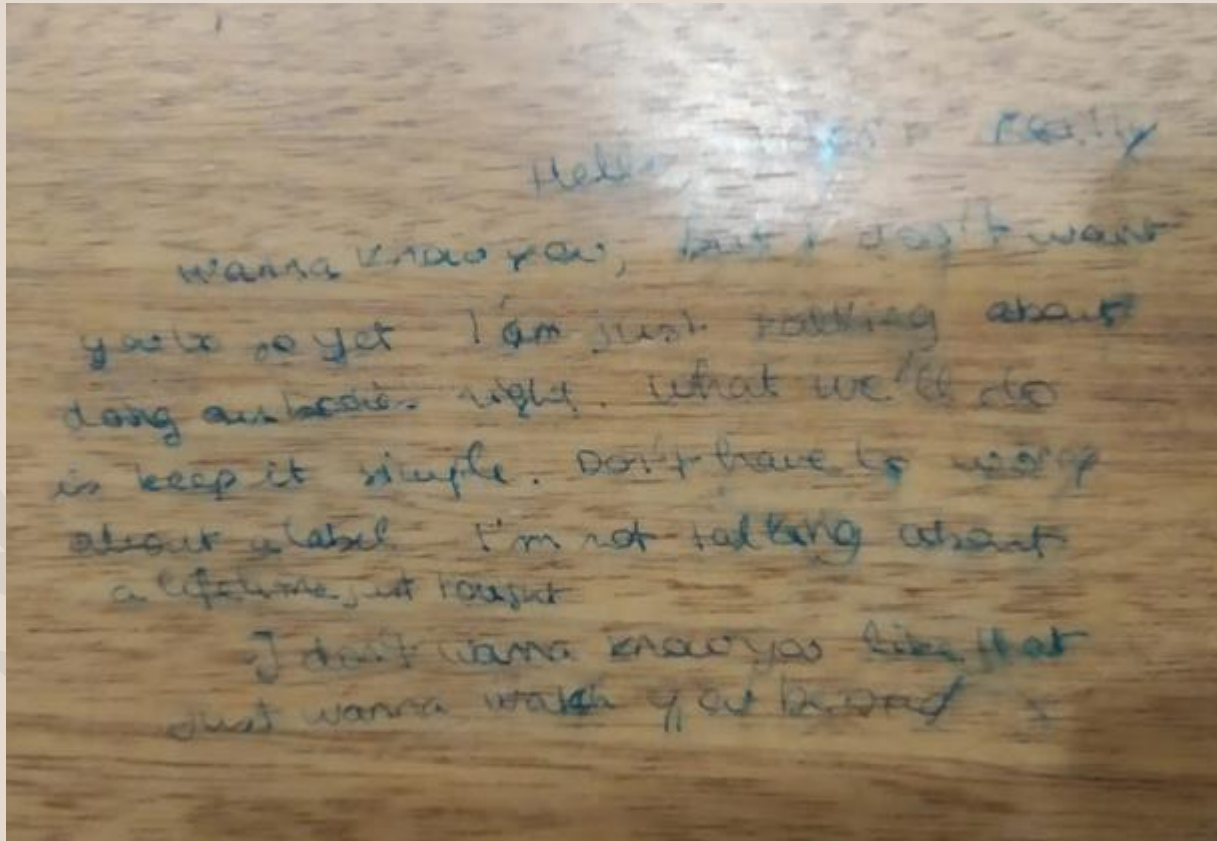 Hello, really
wanna know you, but I don't want
you to go yet I am just talking about
doing our bodies right. What we'll do
is keep it simple. Don't have to worry
about a label I'm not talking about
a lifetime just
I don't wanna know you like that
Just wanna watch